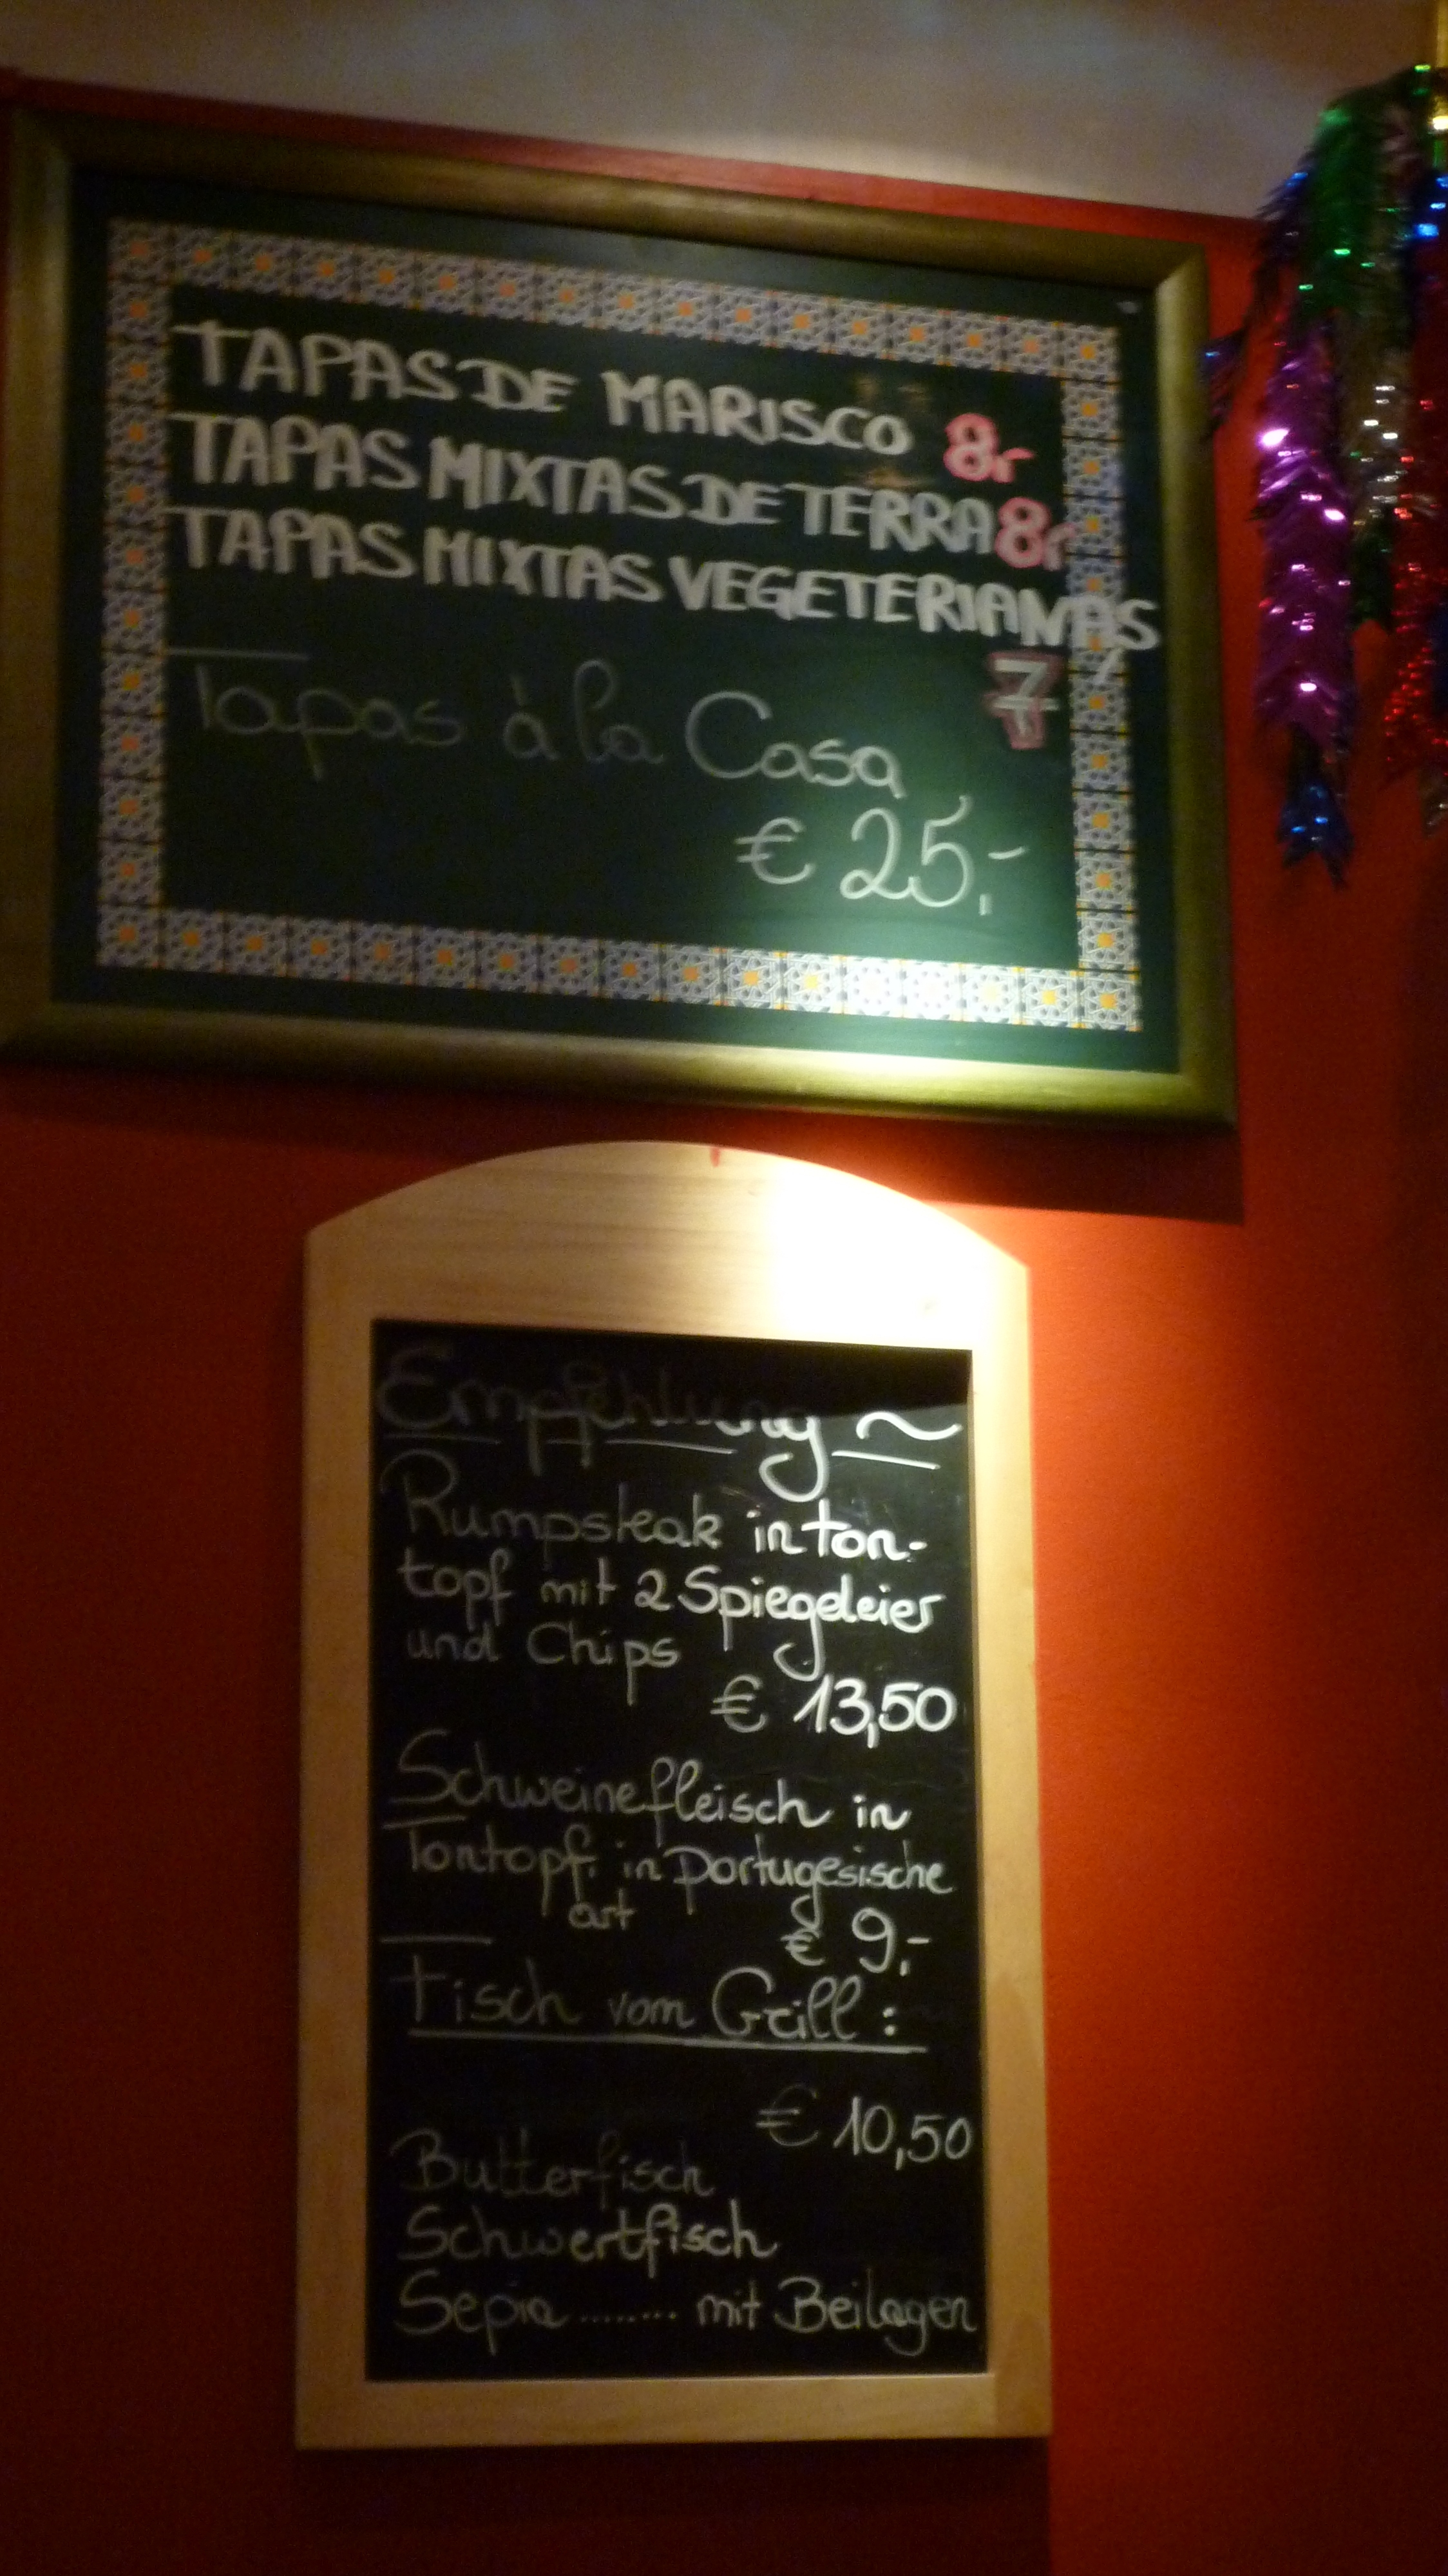 TAPAS DE MARISCO 8,-
TAPAS MIXTAS DE TERRA 8,-
TAPAS MIXTAS VEGETERIANAS
7,-
Tapas à la Casa
€ 25,-
Empfehlung ~
Rumpsteak in ton-
topf mit 2 Spiegeleier
und Chips
€ 13,50
Schweinefleisch in
Tontopf in portugesische
art € 9,-
Fisch vom Grill :
€ 10,50
Butterfisch
Schwertfisch
Sepia ........ mit Beilagen